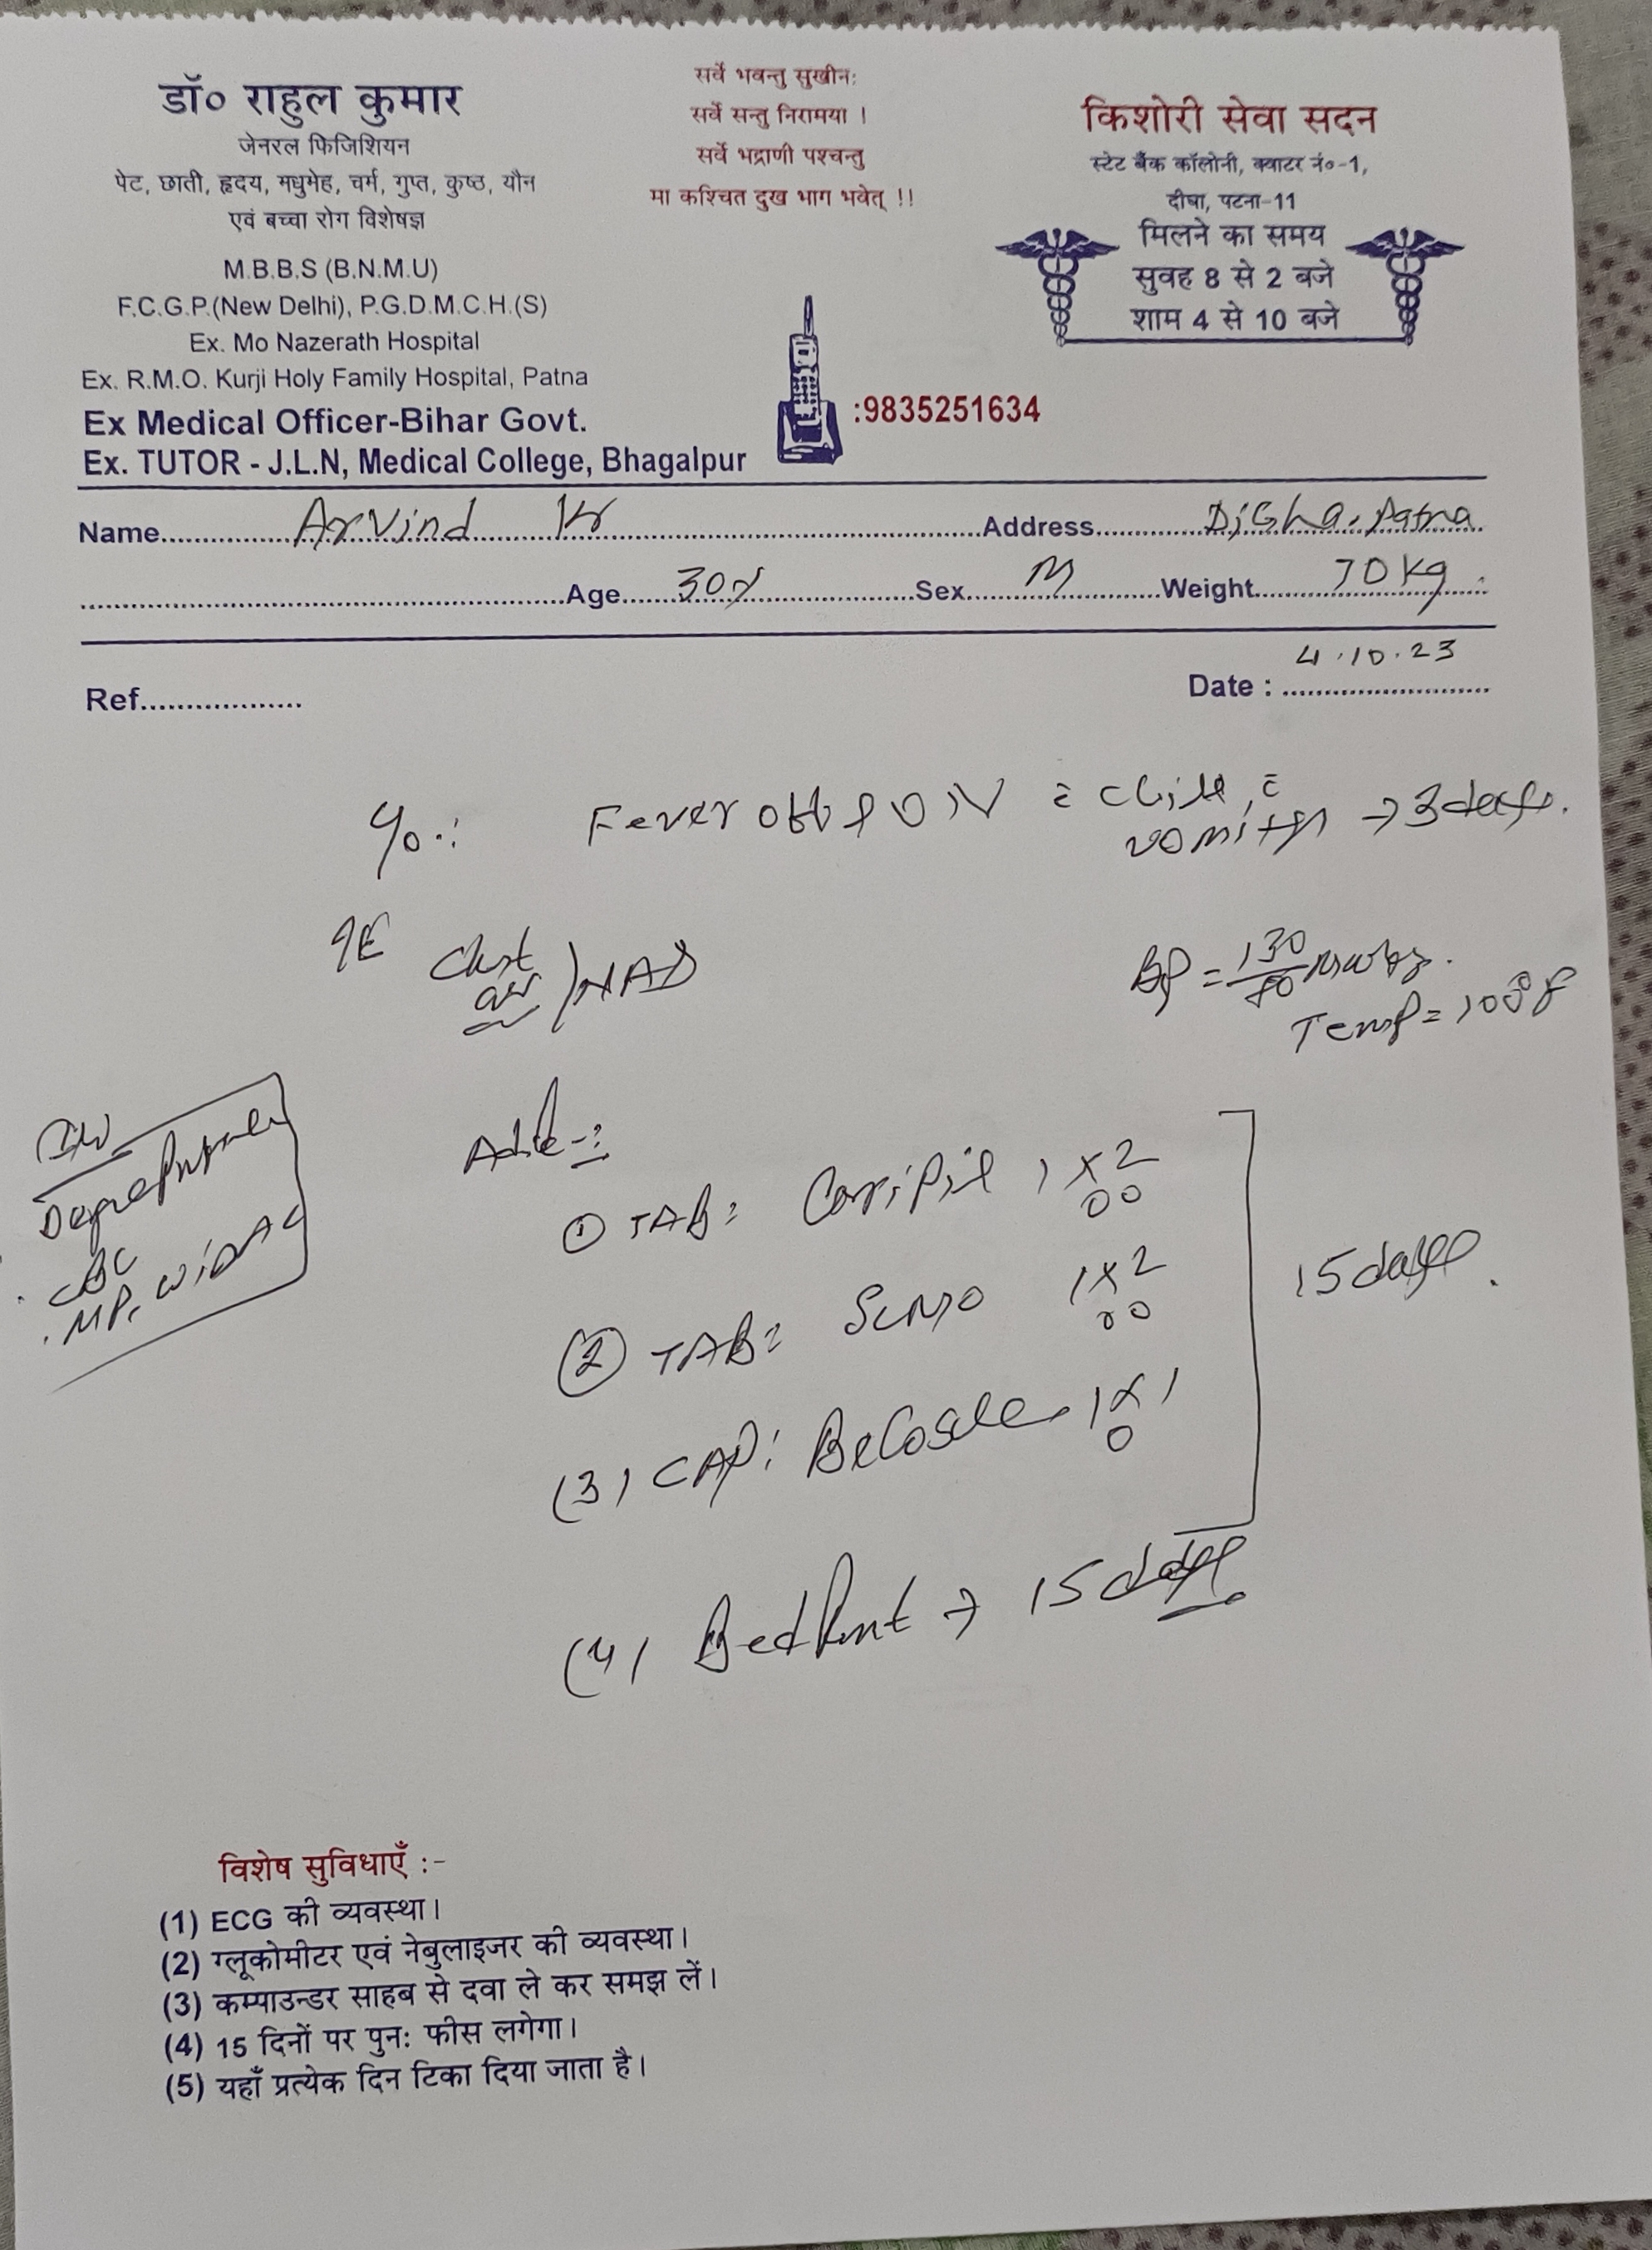 डॉ० राहुल कुमार
जेनरल फिजिशियन
पेट, छाती, हृदय, मधुमेह, चर्म, गुप्त, कुष्ठ, यौन
एवं बच्चा रोग विशेषज्ञ
M.B.B.S (B.N.M.U)
F.C.G.P.(New Delhi), P.G.D.M.C.H.(S)
Ex. Mo Nazerath Hospital
Ex. R.M.O. Kurji Holy Family Hospital, Patna
Ex Medical Officer-Bihar Govt.
Ex. TUTOR - J.L.N, Medical College, Bhagalpur
सर्वे भवन्तु सुखीनः
सर्वे सन्तु निरामया ।
सर्वे भद्राणी पश्चन्तु
मा कश्चित दुख भाग भवेत् !!
:9835251634
किशोरी सेवा सदन
स्टेट बैंक कॉलोनी, क्वाटर नं०-1,
दीघा, पटना-11
मिलने का समय
सुवह 8 से 2 बजे
शाम 4 से 10 बजे
Name Arvind Kr Address Digha, Patna
Age 30y Sex M Weight 70 kg
Ref
Date : 4.10.23
C/o : Fever chill
vomiting → 3 days.
O/E Chest / NAD
BP = 130/80 mmHg.
Temp =
CBC
MP, WIDAL
Adv :
① TAB: 1 x 2
② TAB: 1 x 2
(3) CAP: 1 x 1
15 days.
(4) Bed → 15 days
विशेष सुविधाएँ :-
(1) ECG की व्यवस्था।
(2) ग्लूकोमीटर एवं नेबुलाइजर की व्यवस्था।
(3) कम्पाउन्डर साहब से दवा ले कर समझ लें।
(4) 15 दिनों पर पुनः फीस लगेगा।
(5) यहाँ प्रत्येक दिन टिका दिया जाता है।